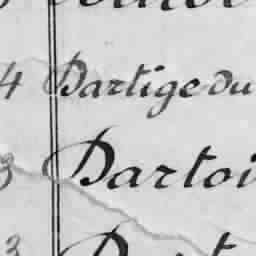 4 Dartige du
3 Dartoi
3